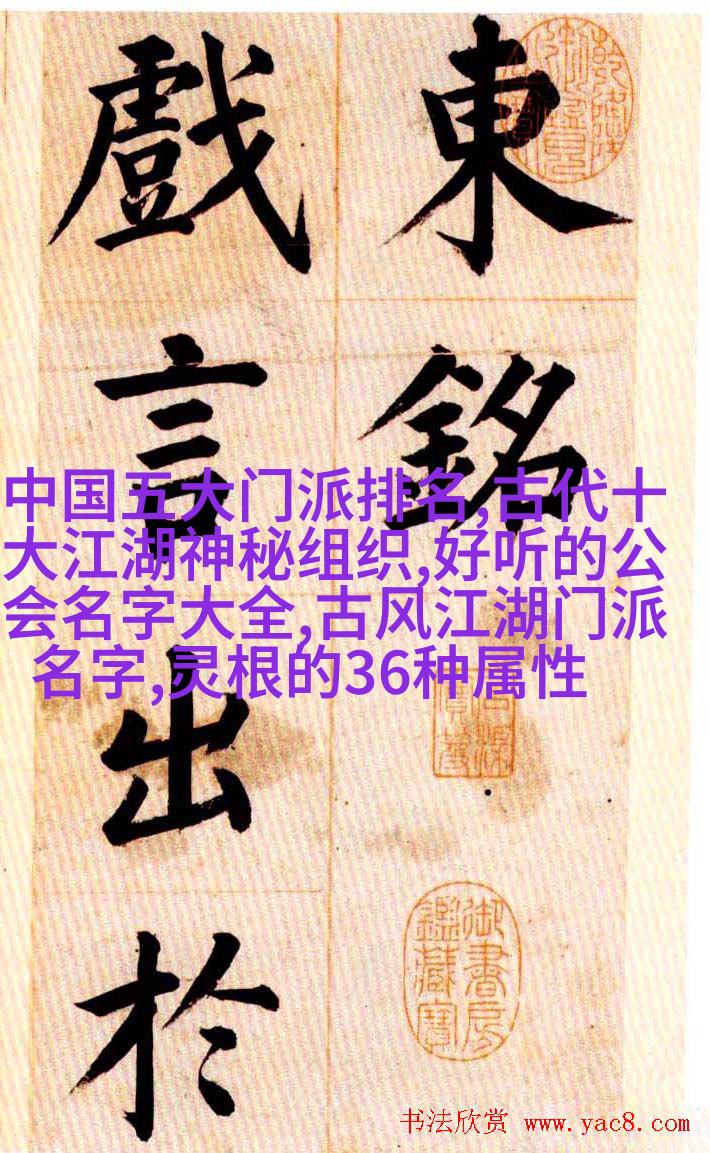 東銘
戲言出於
中国五大门派排名,古代十
大江湖神秘组织,好听的公
会名字大全,古风江湖门派
名字,灵根的36种属性
御書房
鑑藏寶
书法欣赏 www.yac8.com